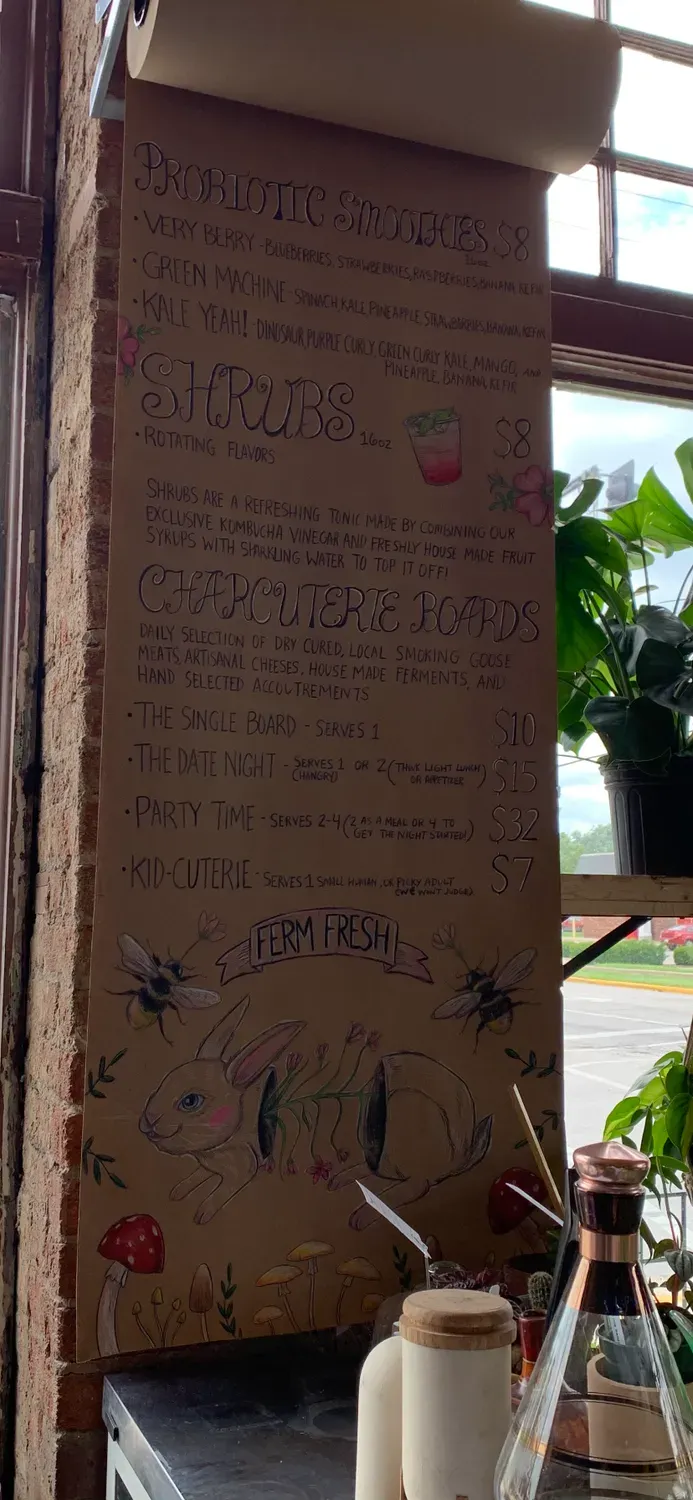 PROBIOTIC SMOOTHIES $8
16oz
• VERY BERRY - BLUEBERRIES, STRAWBERRIES, RASPBERRIES, BANANA, KEFIR
• GREEN MACHINE - SPINACH, KALE, PINEAPPLE, STRAWBERRIES, BANANA, KEFIR
• KALE YEAH! - DINOSAUR, PURPLE CURLY, GREEN CURLY KALE, MANGO, AND
PINEAPPLE, BANANA, KEFIR
SHRUBS 16oz $8
• ROTATING FLAVORS
SHRUBS ARE A REFRESHING TONIC MADE BY COMBINING OUR
EXCLUSIVE KOMBUCHA VINEGAR AND FRESHLY HOUSE MADE FRUIT
SYRUPS WITH SPARKLING WATER TO TOP IT OFF!
CHARCUTERIE BOARDS
DAILY SELECTION OF DRY CURED, LOCAL SMOKING GOOSE
MEATS, ARTISANAL CHEESES, HOUSE MADE FERMENTS, AND
HAND SELECTED ACCOUTREMENTS
• THE SINGLE BOARD - SERVES 1 $10
• THE DATE NIGHT - SERVES 1 OR 2 (TWO LIGHT LUNCH $15
(HANGRY) OR APPETIZER)
• PARTY TIME - SERVES 2-4 (2 AS A MEAL OR 4 TO $32
GET THE NIGHT STARTED!)
• KID-CUTERIE - SERVES 1 SMALL HUMAN, OR PICKY ADULT $7
(WE WON'T JUDGE)
FERM FRESH